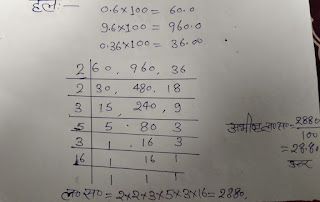 हलः—
0.6×100 = 60.0
9.6×100 = 960.0
0.36×100 = 36.00
2 | 60, 960, 36
2 | 30, 480, 18
3 | 15, 240, 9
5 | 5 · 80 3
3 | 1 . 16 3
16 | 1 16 1
1 1 1
अभीष्ट ल०स० = 2880/100
= 28.80
उत्तर
ल० स० = 2×2×3×5×3×16 = 2880.